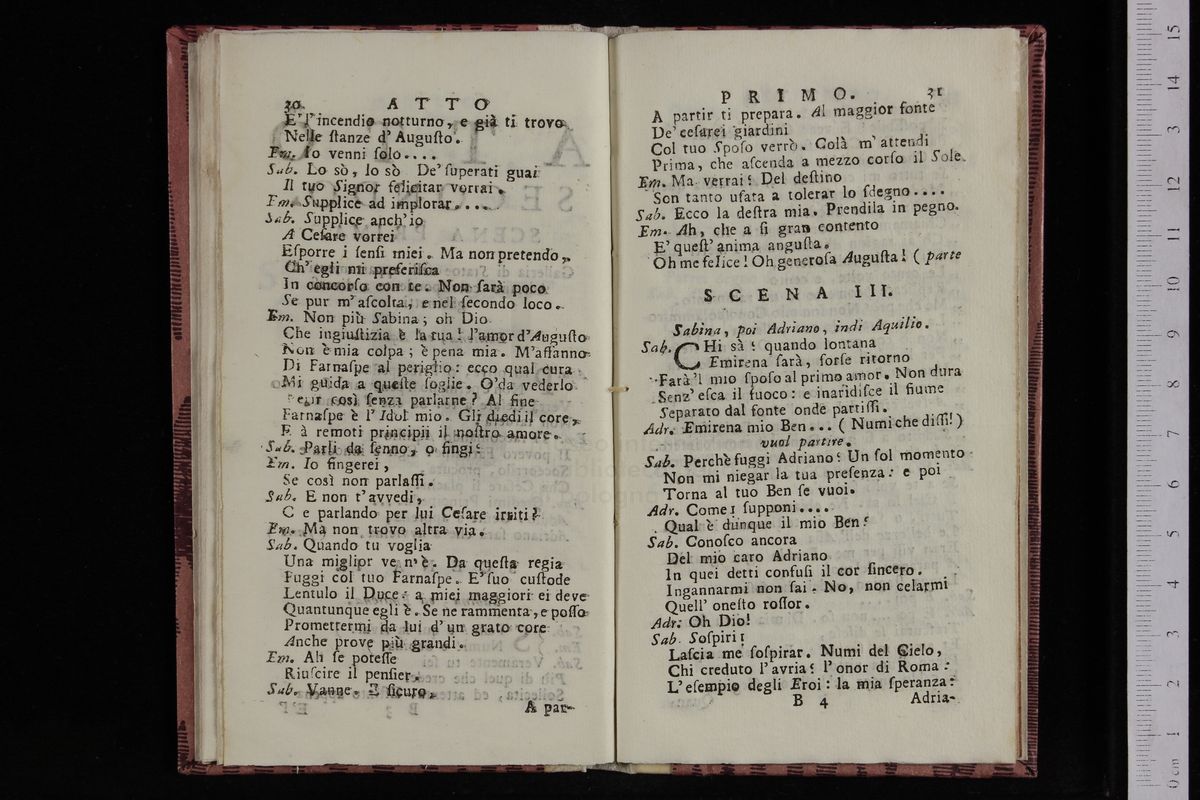 30 ATTO
E' l'incendio notturno, e già ti trovo
Nelle ſtanze d' Auguſto.
Em. Io venni ſolo....
Sab. Lo sò, lo sò De' ſuperati guai
Il tuo Signor felicitar vorrai.
Em. Supplice ad implorar.....
Sab. Supplice anch' io
A Ceſare vorrei
Eſporre i ſenſi miei. Ma non pretendo,
Ch' egli mi preferiſca
In concorſo con te. Non ſarà poco
Se pur m' aſcolta, e nel ſecondo loco.
Em. Non più Sabina; oh Dio
Che ingiuſtizia è la tua! l'amor d'Auguſto
Non è mia colpa; è pena mia. M'affanno
Di Farnaſpe al periglio: ecco qual cura
Mi guida a queſte ſoglie. O'da vederlo
così ſenza parlarne? Al fine
Farnaſpe è l' Idol mio. Gli diedi il core,
E à remoti principii il noſtro amore.
Sab. Parli da ſenno, o fingi?
Em. Io fingerei,
Se così non parlaſſi.
Sab. E non t' avvedi,
C e parlando per lui Ceſare irriti?
Em. Mà non trovo altra via.
Sab. Quando tu voglia
Una miglior ve n' è. Da queſta regia
Fuggi col tuo Farnaſpe. E' ſuo cuſtode
Lentulo il Duce: a miei maggiori ei deve
Quantunque egli è. Se ne rammenta, e poſſo
Promettermi da lui d' un grato core
Anche prove più grandi.
Em. Ah ſe poteſſe
Riuſcire il penſier.
Sab. Vanne. E ſicuro,
A par-
PRIMO. 31
A partir ti prepara. Al maggior fonte
De' ceſarei giardini
Col tuo Spoſo verrò. Colà m' attendi
Prima, che aſcenda a mezzo corſo il Sole.
Em. Ma verrai? Del deſtino
Son tanto uſata a tolerar lo ſdegno....
Sab. Ecco la deſtra mia. Prendila in pegno.
Em. Ah, che a ſi gran contento
E' queſt' anima anguſta.
Oh me felice! Oh generoſa Auguſta! ( parte
SCENA III.
Sabina, poi Adriano, indi Aquilio.
Sab. CHi sà? quando lontana
Emirena ſarà, forſe ritorno
Farà'l mio ſpoſo al primo amor. Non dura
Senz' eſca il fuoco: e inaridiſce il fiume
Separato dal fonte onde partiſſi.
Adr. Emirena mio Ben... ( Numi che diſſi! )
vuol partire.
Sab. Perchè fuggi Adriano? Un ſol momento
Non mi niegar la tua preſenza: e poi
Torna al tuo Ben ſe vuoi.
Adr. Come! ſupponi....
Qual è dunque il mio Ben?
Sab. Conoſco ancora
Del mio caro Adriano
In quei detti confuſi il cor ſincero.
Ingannarmi non ſai. No, non celarmi
Quell' oneſto roſſor.
Adr: Oh Dio!
Sab. Soſpiri!
Laſcia me ſoſpirar. Numi del Cielo,
Chi creduto l'avria? l'onor di Roma:
L'eſempio degli Eroi: la mia ſperanza:
B 4 Adria-